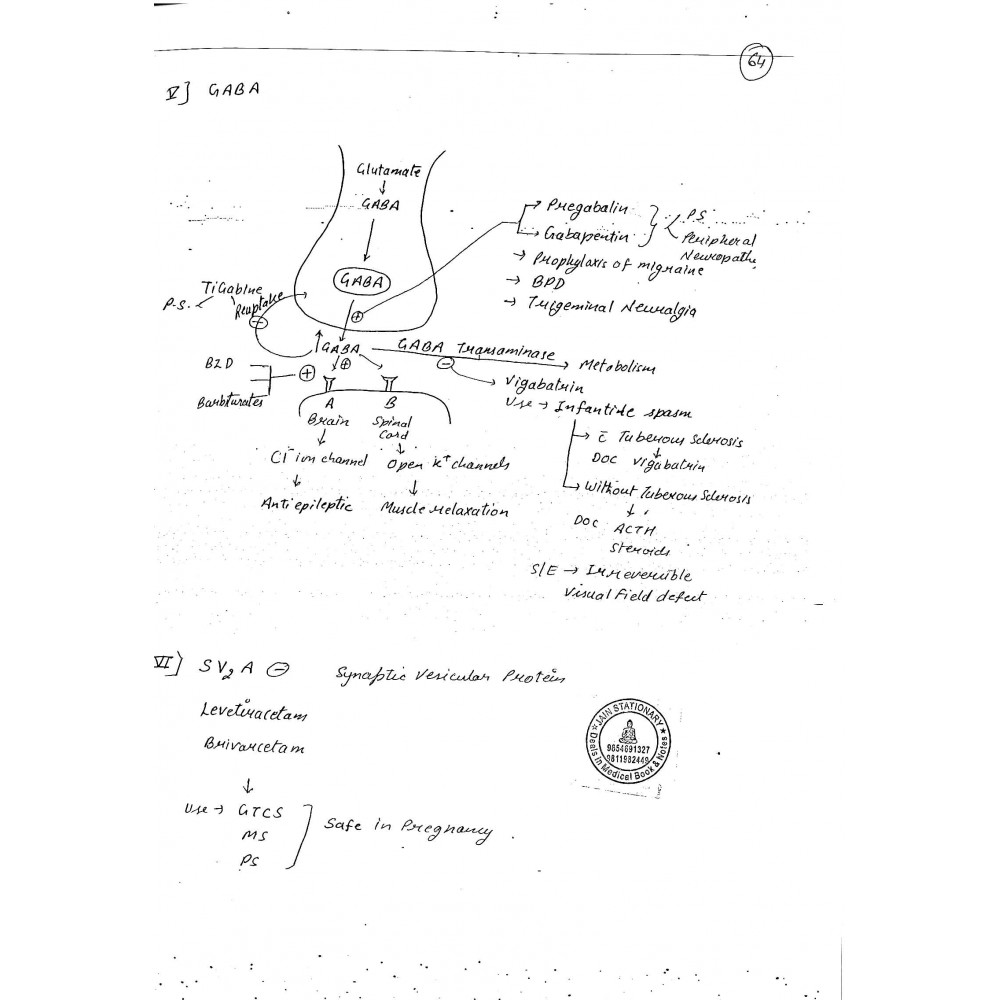 64
V] GABA
Glutamate
↓
GABA
↓
GABA
⊕
Pregabalin
Gabapentin
PS
Peripheral
Neuropathy
→ Prophylaxis of migraine
→ BPD
→ Trigeminal Neuralgia
TiGabine
P.S.
Reuptake
⊖
↑ GABA
GABA Transaminase
→ Metabolism
⊖
Vigabatrin
BZD
Barbiturates
⊕
⊕
A
B
Brain
Spinal
Cord
Cl⁻ ion channel
Open K⁺ channels
Antiepileptic
Muscle relaxation
Use → Infantile spasm
→ c̄ Tuberous Sclerosis
DOC Vigabatrin
→ Without Tuberous Sclerosis
DOC ACTH
Steroids
S/E → Irreversible
Visual Field defect
VI] SV₂A ⊖ Synaptic Vesicular Protein
Levetiracetam
Brivarcetam
↓
Use → GTCS
MS
PS
Safe in Pregnancy.
JAIN STATIONARY
9654691327
9811982449
Deals in Medical Book & Notes